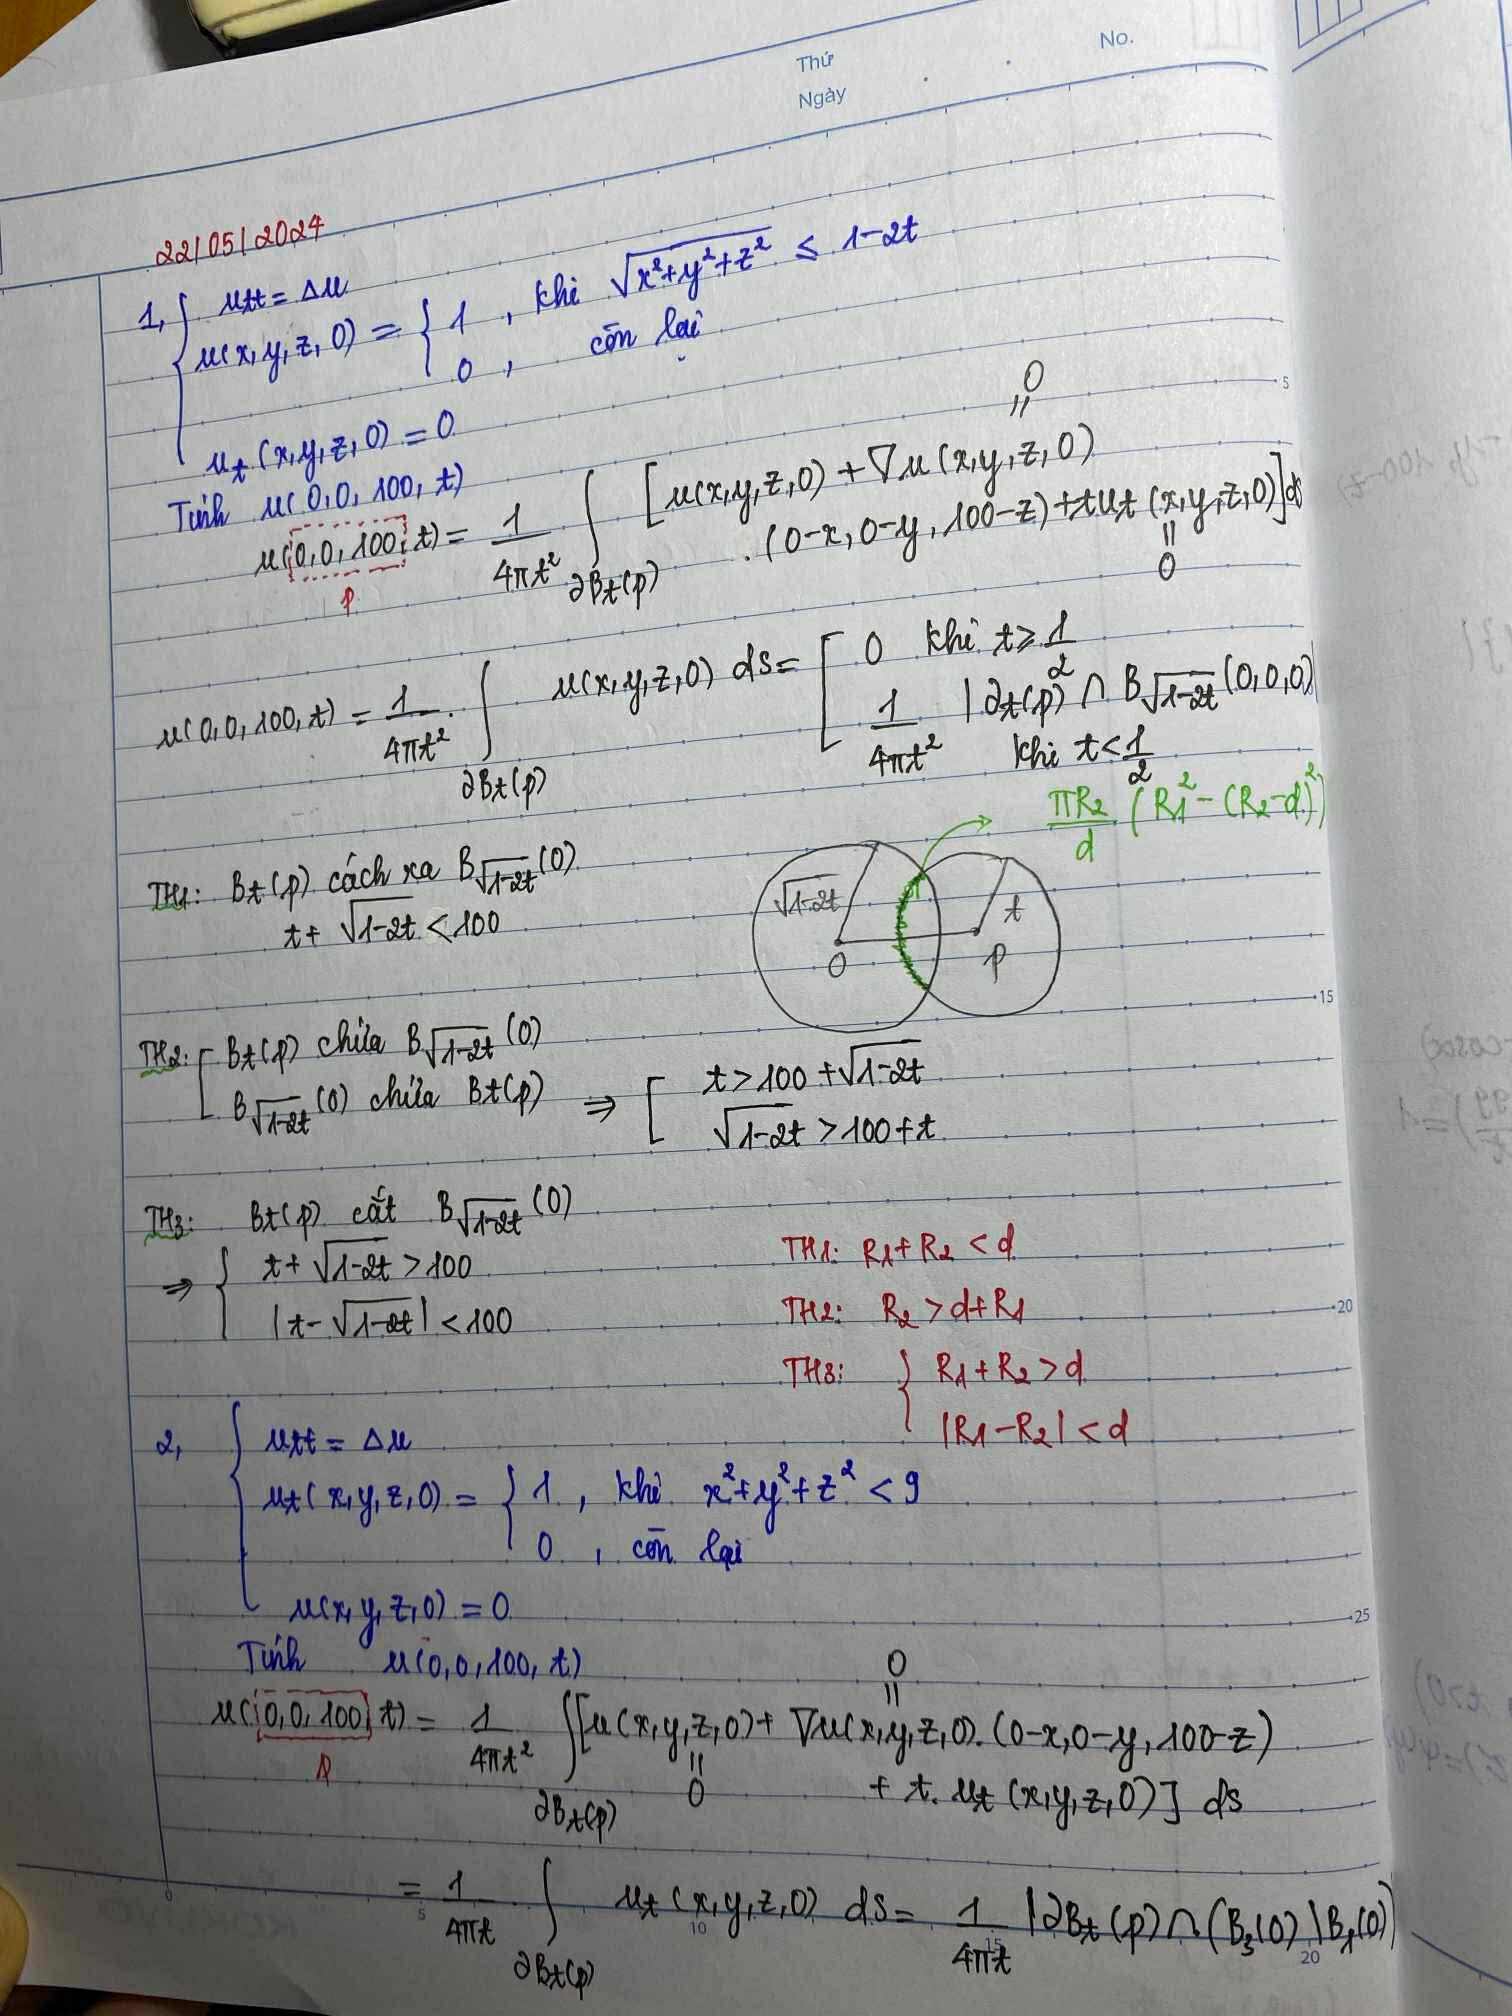 Thứ
No.
Ngày
22/05/2024
1, { utt = Δu
u(x,y,z,0) = { 1 , khi √(x²+y²+z²) ≤ 1-2t
0 , còn lại
ut(x,y,z,0) = 0
Tính u(0,0,100,t)
u(0,0,100,t) = 1/(4πt²) ∫_{∂Bt(p)} [u(x,y,z,0) + ∇u(x,y,z,0)
.(0-x,0-y,100-z) + tut(x,y,z,0)]ds
p
= 0
= 0
u(0,0,100,t) = 1/(4πt²) . ∫_{∂Bt(p)} u(x,y,z,0) ds = [ 0 khi t ≥ 1/2
1/(4πt²) |∂t(p) ∩ B_{√(1-2t)}(0,0,0)
khi t < 1/2
πR2/d (R1² - (R2-d)²)
TH1: Bt(p) cách xa B_{√(1-2t)}(0)
t + √(1-2t) < 100
√(1-2t)
t
O
p
TH2: [ Bt(p) chứa B_{√(1-2t)}(0)
B_{√(1-2t)}(0) chứa Bt(p) ⇒ [ t > 100 + √(1-2t)
√(1-2t) > 100 + t
TH3: Bt(p) cắt B_{√(1-2t)}(0)
⇒ { t + √(1-2t) > 100
|t - √(1-2t)| < 100
TH1: R1 + R2 < d
TH2: R2 > d + R1
TH3: { R1 + R2 > d
|R1 - R2| < d
2, { utt = Δu
ut(x,y,z,0) = { 1 , khi x²+y²+z² < 9
0 , còn lại
u(x,y,z,0) = 0
Tính u(0,0,100,t)
u(0,0,100,t) = 1/(4πt²) ∫_{∂Bt(p)} [u(x,y,z,0) + ∇u(x,y,z,0).(0-x,0-y,100-z)
+ t.ut(x,y,z,0)] ds
= 0
= 0
= 1/(4πt) . ∫_{∂Bt(p)} ut(x,y,z,0) ds = 1/(4πt) |∂Bt(p) ∩ (B3(0) \ B1(0)
5
15
20
25
0
5
10
15
20